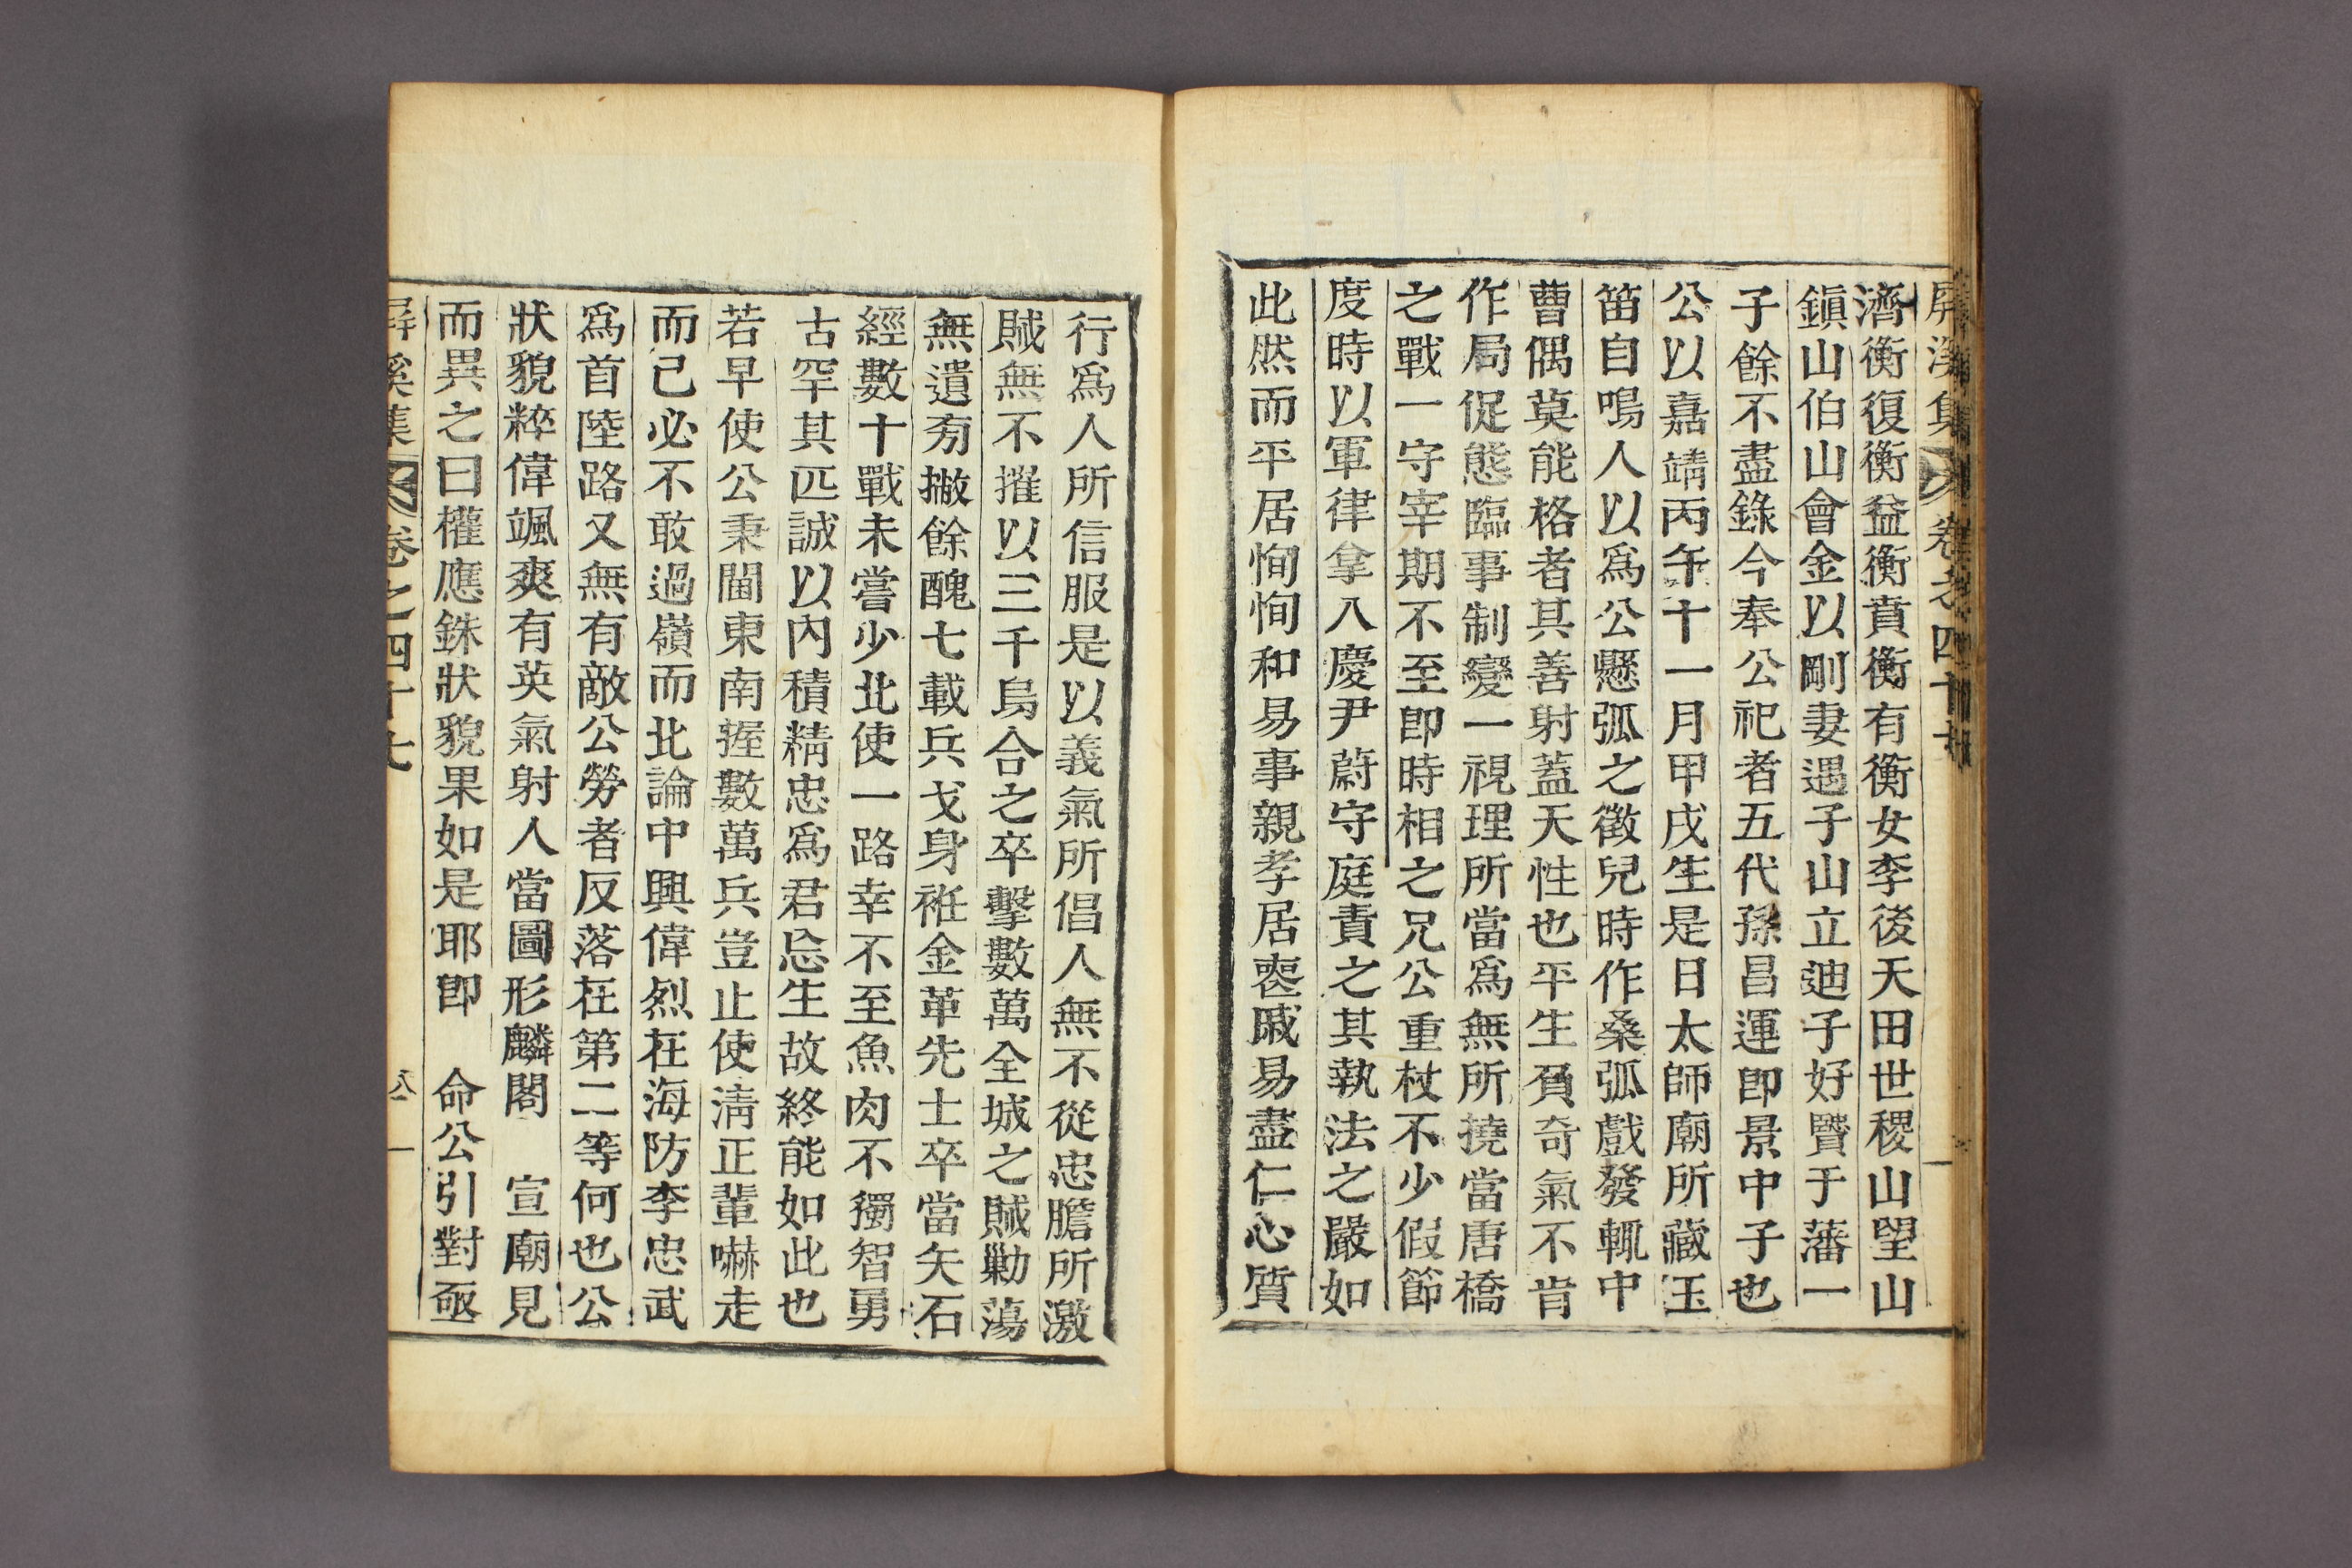 屛溪集 卷之四十七
濟衡復衡益衡賁衡有衡女李後天田世稷山望山
鎭山伯山會金以剛妻遇子山立迪子好賢于藩一
子餘不盡錄今奉公祀者五代孫昌運卽景中子也
公以嘉靖丙午十一月甲戌生是日太師廟所藏玉
笛自鳴人以爲公懸弧之徵兒時作桑弧戲發輒中
曹偶莫能格者其善射蓋天性也平生負奇氣不肯
作局促態臨事制變一視理所當爲無所撓當唐橋
之戰一守宰期不至卽時相之兄公重杖不少假節
度時以軍律拿入慶尹蔚守庭責之其執法之嚴如
此然而平居恂恂和易事親孝居喪戚易盡仁心質
行爲人所信服是以義氣所倡人無不從忠膽所激
賊無不摧以三千烏合之卒擊數萬全城之賊勦蕩
無遺旁撇餘醜七載兵戈身袵金革先士卒當矢石
經數十戰未嘗少北使一路幸不至魚肉不獨智勇
古罕其匹誠以內積精忠爲君忘生故終能如此也
若早使公秉閫東南握數萬兵豈止使淸正輩嚇走
而已必不敢過嶺而北論中興偉烈在海防李忠武
爲首陸路又無有敵公勞者反落在第二等何也公
狀貌粹偉颯爽有英氣射人當圖形麟閣 宣廟見
而異之曰權應銖狀貌果如是耶卽 命公引對亟
屛溪集 卷之四十七